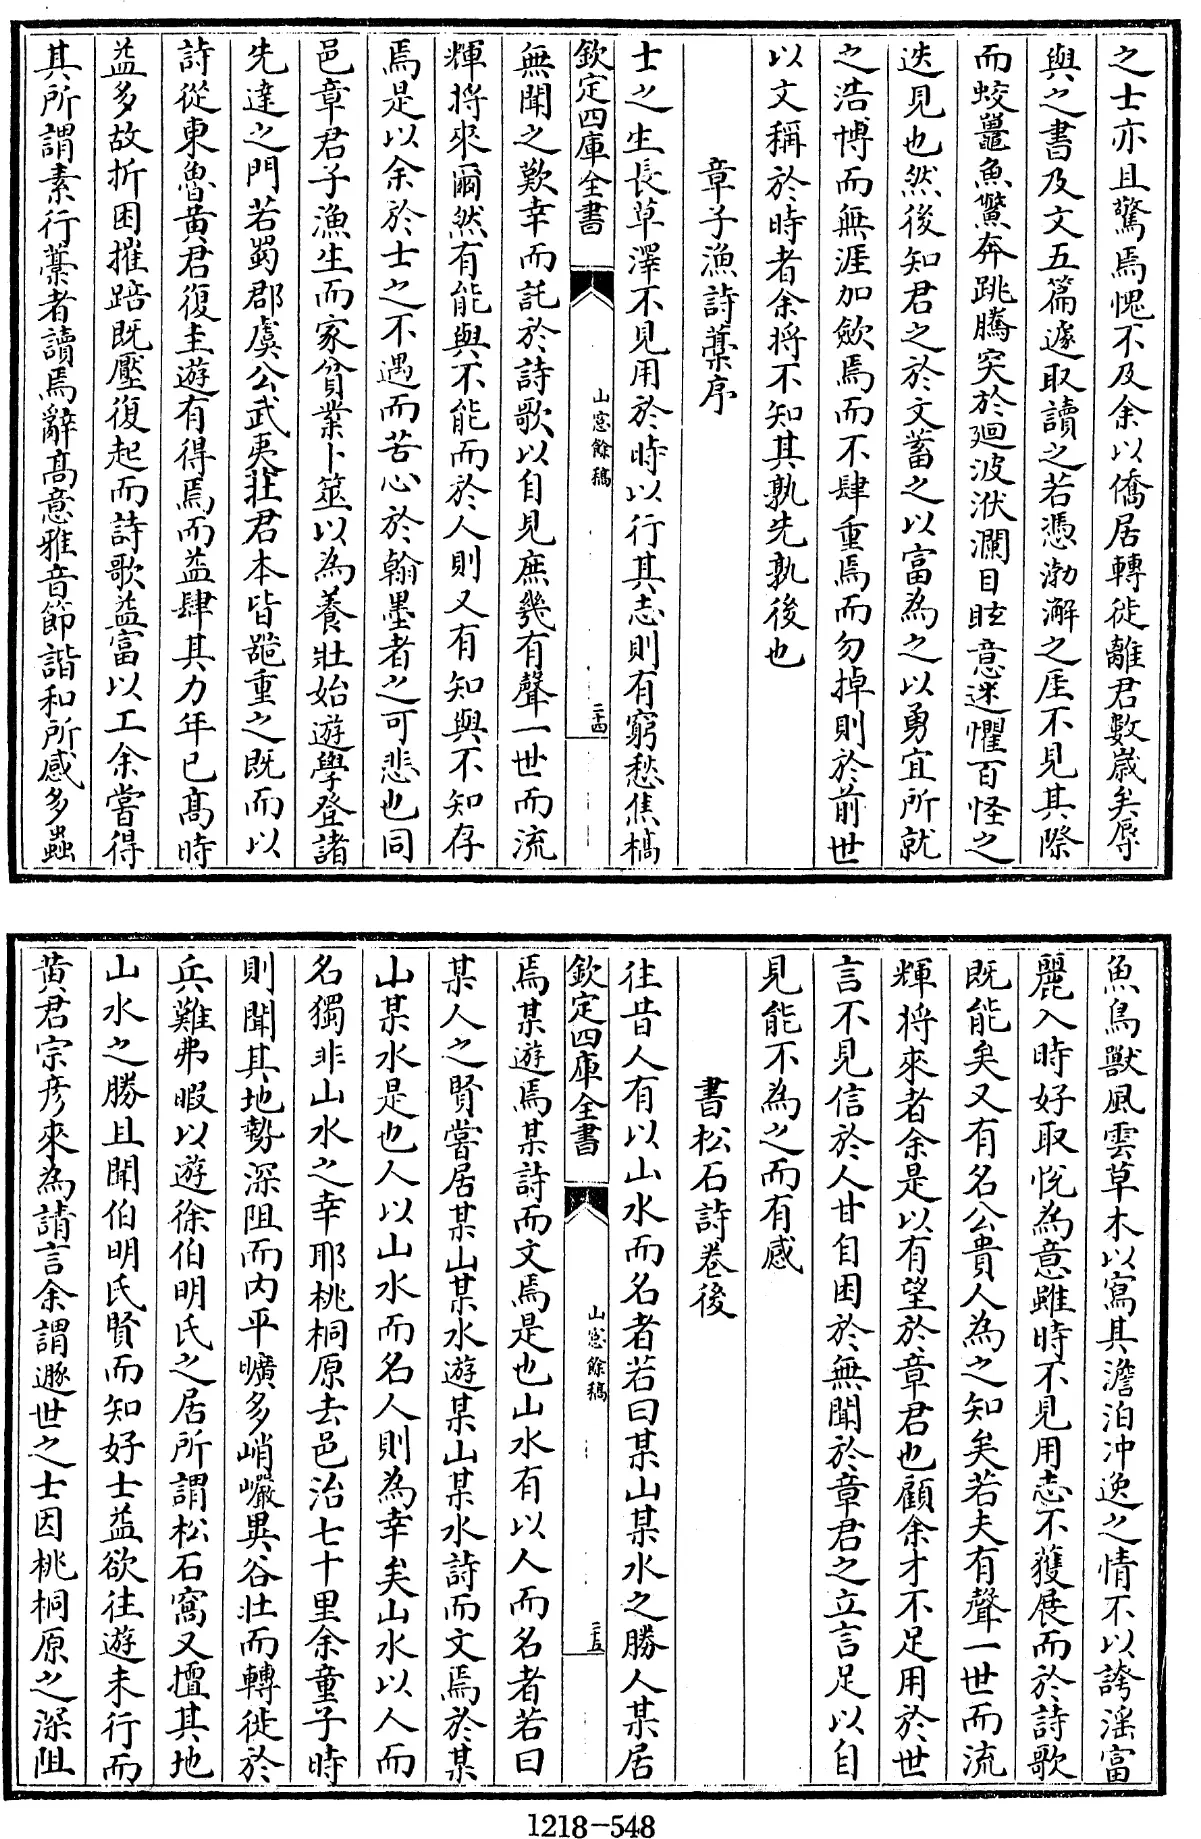 之士亦且驚焉愧不及余以僑居轉徙離君數歲矣辱
與之書及文五篇遽取讀之若憑渤澥之厓不見其際
而蛟鼉魚鱉奔跳騰突於廻波洑瀾目眩意迷懼百怪之
迭見也然後知君之於文蓄之以富為之以勇宜所就
之浩博而無涯加歛焉而不肆重焉而勿掉則於前世
以文稱於時者余將不知其孰先孰後也
章子漁詩藁序
士之生長草澤不見用於時以行其志則有窮愁焦槁
欽定四庫全書
山窓餘稿
二十四
無聞之歎幸而託於詩歌以自見庶幾有聲一世而流
輝將來爾然有能與不能而於人則又有知與不知存
焉是以余於士之不遇而苦心於翰墨者之可悲也同
邑章君子漁生而家貧業卜筮以為養壯始遊學登諸
先達之門若蜀郡虞公武夷莊君本皆器重之既而以
詩從東魯黃君復圭遊有得焉而益肆其力年已髙時
益多故折困摧踣既壓復起而詩歌益富以工余嘗得
其所謂素行藁者讀焉辭髙意雅音節諧和所感多蟲
魚鳥獸風雲草木以寫其澹泊冲逸之情不以誇滛富
麗入時好取悅為意雖時不見用志不獲展而於詩歌
既能矣又有名公貴人為之知矣若夫有聲一世而流
輝將來者余是以有望於章君也顧余才不足用於世
言不見信於人甘自困於無聞於章君之立言足以自
見能不為之而有感
書松石詩卷後
往昔人有以山水而名者若曰某山某水之勝人某居
欽定四庫全書
山窓餘稿
二十五
焉某遊焉某詩而文焉是也山水有以人而名者若曰
某人之賢嘗居某山某水遊某山某水詩而文焉於某
山某水是也人以山水而名人則為幸矣山水以人而
名獨非山水之幸耶桃桐原去邑治七十里余童子時
則聞其地勢深阻而内平曠多峭巖異谷壯而轉徙於
兵難弗暇以遊徐伯明氏之居所謂松石窩又擅其地
山水之勝且聞伯明氏賢而知好士益欲往遊未行而
黃君宗彥來為請言余謂遯世之士因桃桐原之深阻
1218-548